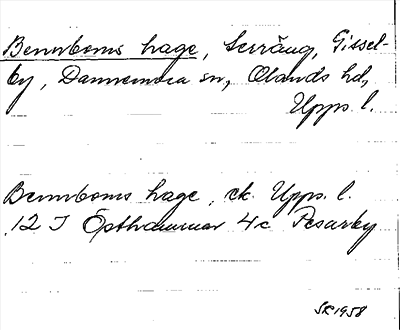 Bennboms hage, Terräng, Gissel-
by, Dannemora sn, Olands hd,
Upps. l.
Bennboms hage, ek. Upps. l.
12 I Östhammar 4c Pesarby
SR 1958